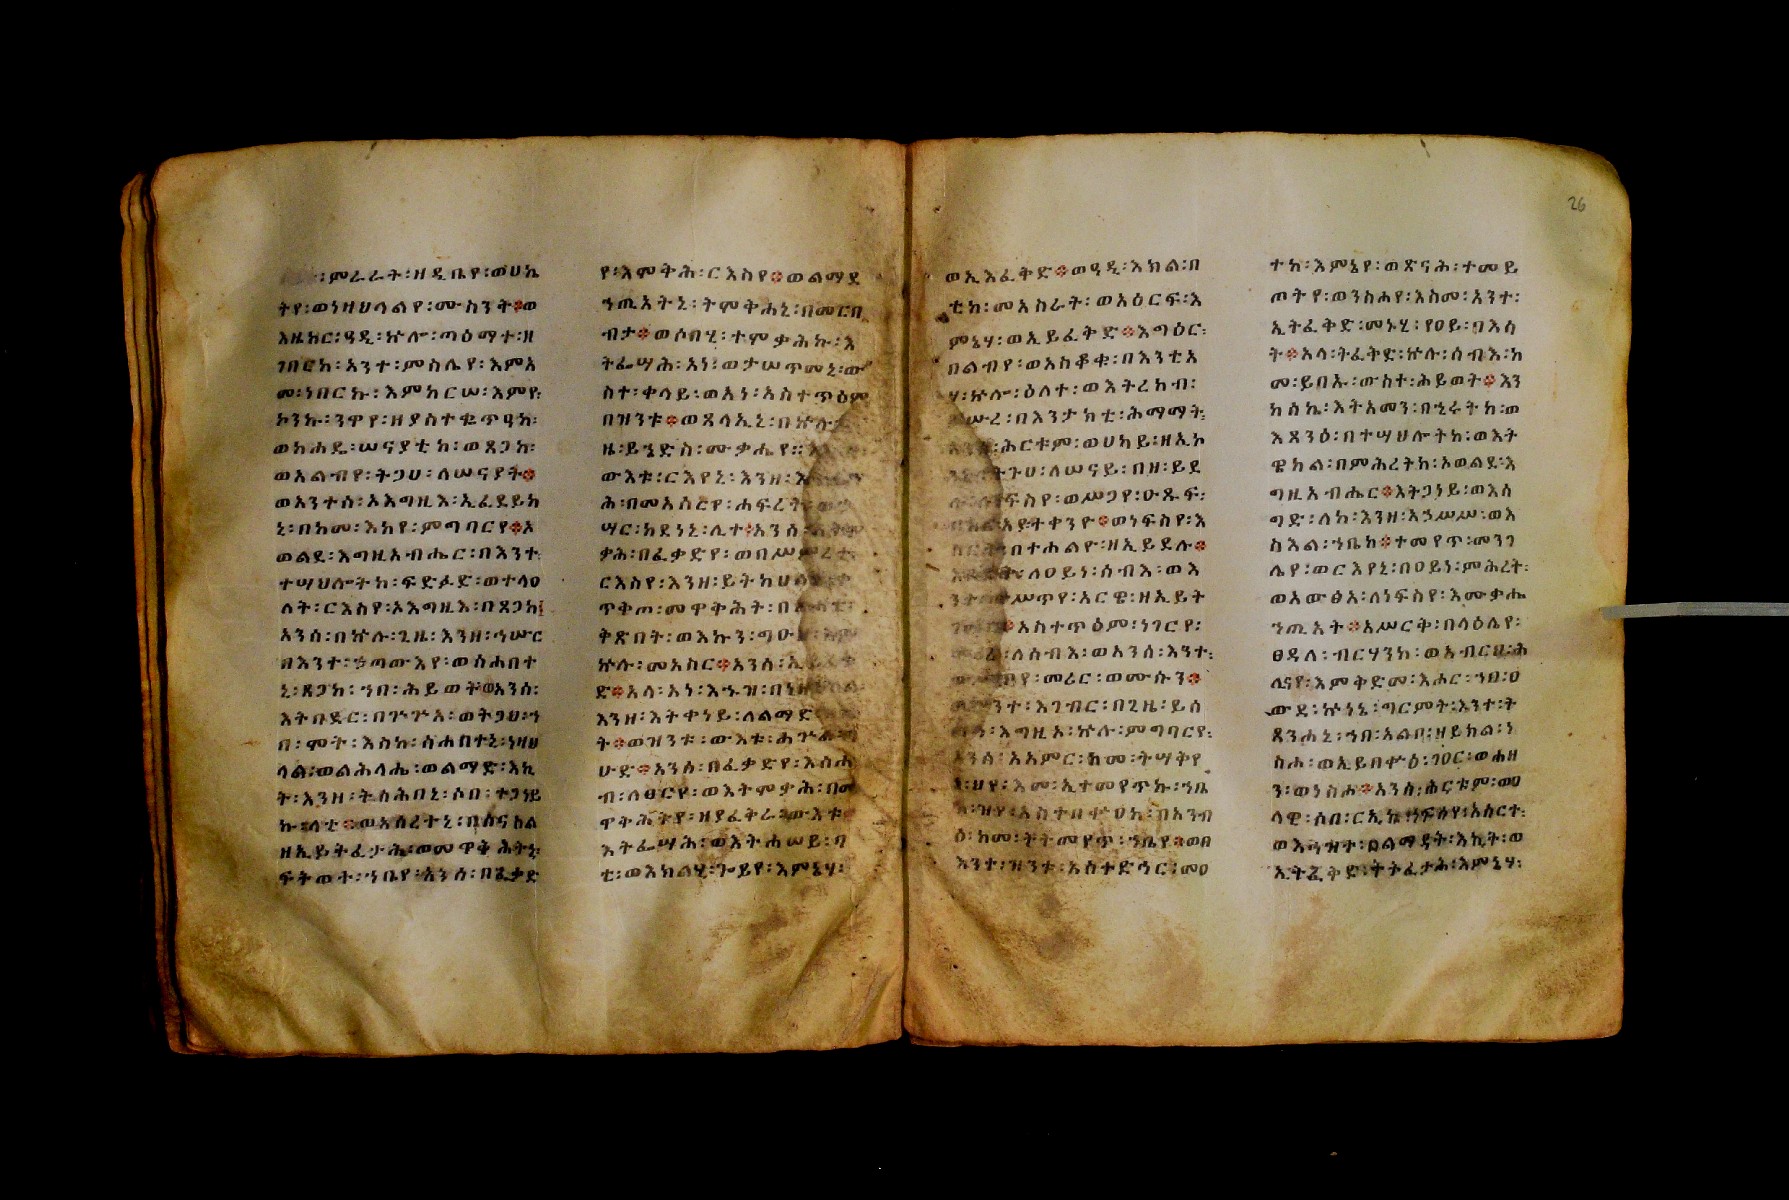 ምራራት፡ዘዲቤየ፡ወሀኬ
ትየ፡ወነዛህላልየ፡ሙስንት፨ወ
እዜከር፡ዓዲ፡ኵሎ፡ጣዕማተ፡ዘ
ገበርከ፡አንተ፡ምስሌየ፡እምአ
መ፡ነበርኩ፡እምከርሠ፡እምየ፡
ኮንኩ፡ንዋየ፡ዘያስተቁጥዓከ፡
ወክሐዴ፡ሠናያቲከ፡ወጸጋከ፡
ወአልብየ፡ትጋሀ፡ለሠናያት፨
ወአንተሰ፡ኦእግዚእ፡ኢፈደይከ
ኒ፡በከመ፡እከየ፡ምግባርየ፨አ
ወልደ፡እግዚአብሔር፡በእንተ፡
ተሣህሎትከ፡ፍድፉድ፡ወተላዐ
ለት፡ርእስየ፡ኦእግዚእ፡በጸጋከ
አንሰ፡በኵሉ፡ጊዜ፡እንዘ፡ኀሡር
ዘእንተ፡ኃጣውእየ፡ወስሐበተ
ኒ፡ጸጋከ፡ኀበ፡ሕይወት፡ወአንሰ፡
እትቡደር፡በጕጕአ፡ወትጋህ፡ኀ
በ፡ሞት፡እስኩ፡ሰሐበተኒ፡ነዛህ
ላል፡ወልሕላሔ፡ወልማድ፡እኪ
ት፡እንዘ፡ትስሕበኒ፡ሶበ፡ተጋነይ
ኩ፡ላቲ፨ወአሰረተኒ፡በሰናስል
ዘኢይትፈታሕ፡ወመዋቅሕትኒ፡
ፍትወት፡ኀቤየ፡አንሰ፡በፈቃድ
የ፡እሞትሕ፡ርእስየ፨ወልማደ
ኀጢአትኒ፡ትሞቅሐኒ፡በመርበ
ብታ፨ወሶበሂ፡ተሞቃሕኩ፡እ
ትፌሣሕ፡አነ፡ወታሠጥመኒ፡ው
ስተ፡ቀላይ፡ወአነ፡አስተጥዕም
በዝንቱ፨ወጸላኢኒ፡በኵሉ
ዜ፡ይኄድስ፡ሙቃሔየ፡
ውእቱ፡ርእየኒ፡እንዘ፡
ሕ፡በመአስርየ፡ሐፍረት፡
ሣር፡ከደነኒ፡ሊተ፨አንሰ፡
ቃሕ፡በፈቃድየ፡ወበሥምረት፡
ርእስየ፡እንዘ፡ይትከሀለኒ፡
ጥቅጠ፡መዋቅሕት፡በ
ቅጽበት፡ወእኩን፡ግዑዘ፡
ኵሉ፡መአስር፨አንሰ፡ኢይፈቅ
ድ፨አላ፡አነ፡እኁዝ፡በነዛህላል
እንዘ፡እትቀነይ፡ለልማድ
ት፨ወዝንቱ፡ውእቱ፡ሕጕል
ሁድ፨አንሰ፡በፈቃድየ፡እሰሐ
ብ፡ለፀርየ፡ወእትሞቃሕ፡በመ
ዋቅሕትየ፡ዘያፈቅራ፡ውእቱ
እትፌሣሕ፡ወእትሐሠይ፡ባ
ቲ፡ወእክልሂ፡ጐይየ፡እምኔሃ፡
ወኢእፈቅድ፨ወዓዲ፡እክል፡በ
ቲከ፡መአስራት፡ወአዕርፍ፡እ
ምኔሃ፡ወኢይፈቅድ፨እግዕር፡
በልብየ፡ወአስቆቁ፡በእንቲአ
ሃ፡ኵሎ፡ዕለተ፡ወእትረከብ፡
ሥረ፡በእንታክቲ፡ሕማማት፡
ሕርቱም፡ወሀካይ፡ዘኢኮ
ትጉሀ፡ለሠናይ፡በዘ፡ይደ
ለነፍስየ፡ወሥጋየ፡ዑጹፍ፡
አያትቀንዮ፨ወነፍስየ፡እ
በተሐልዮ፡ዘኢይደሉ፨
ለዐይነ፡ሰብእ፡ወእ
ሥጥየ፡አርዌ፡ዘኢይት
አስተጥዕም፡ነገርየ፡
ለሰብእ፡ወአንሰ፡እንተ፡
የ፡መሪር፡ወሙሱን፨
እገብር፡በጊዜ፡ይሰ
እግዚአ፡ኵሉ፡ምግባርየ፡
አንሰ፡አአምር፡ከመ፡ትሣቅየ
እመ፡ኢተመየጥኩ፡ኀቤ
አስተበቍዐከ፡በአንብ
ዕ፡ከመ፡ትትመየጥ፡ኀቤየ፨ወበ
እንተ፡ዝንቱ፡አስተድኅር፡መዐ
ተከ፡እምኔየ፡ወጽናሕ፡ተመይ
ጦትየ፡ወንስሐየ፡እስመ፡አንተ፡
ኢትፈቅድ፡መኑሂ፡የዐይ፡በእሳ
ት፨አላ፡ትፈቅድ፡ኵሉ፡ሰብእ፡ከ
መ፡ይበኡ፡ውስተ፡ሕይወት፨እን
ከሰኬ፡እትአመን፡በኂሩትከ፡ወ
እጸንዕ፡በተሣህሎትከ፡ወእት
ዌከል፡በምሕረትከ፡ኦወልደ፡እ
ግዚአብሔር፨እትጋነይ፡ወእሰ
ግድ፡ለከ፡እንዘ፡አኃሥሥ፡ወእ
ስእል፡ኀቤከ፨ተመየጥ፡መንገ
ሌየ፡ወርእየኒ፡በዐይነ፡ምሕረት፡
ወአውፅአ፡ለነፍስየ፡እሙቃሔ
ኀጢአት፨አሥርቅ፡በላዕሌየ፡
ፀዳለ፡ብርሃንከ፡ወአብርህ፡ሕ
ሊናየ፡እምቅድመ፡እሖር፡ኀበ፡ዐ
ውደ፡ኵነኔ፡ግርምት፡እንተ፡ት
ጸንሐኒ፡ኀበ፡አልቦ፡ዘይክል፡ነ
ስሐ፡ወኢይበቍዕ፡ገዐር፡ወሐዘ
ን፡ወነስሐ፨አንሰ፡ሕርቱም፡ወዐ
ላዊ፡ሶበ፡ርኢኩ፡ነፍስየ፡እስርተ፡
ወእኅዝተ፡በልማዳት፡እኪት፡ወ
ኢትፈቅድ፡ትትፈታሕ፡እምኔሃ፡
26